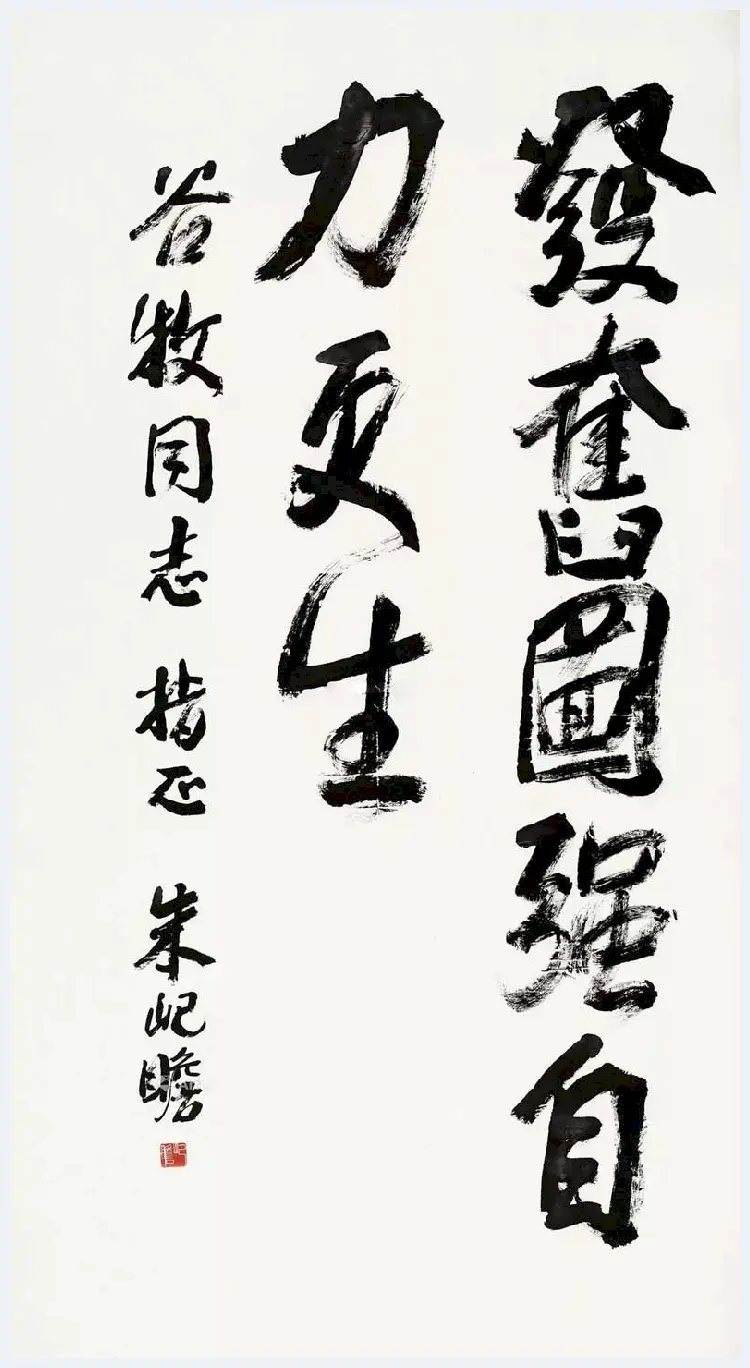 發奮圖强自
力更生
谷牧同志 指正 朱屺瞻